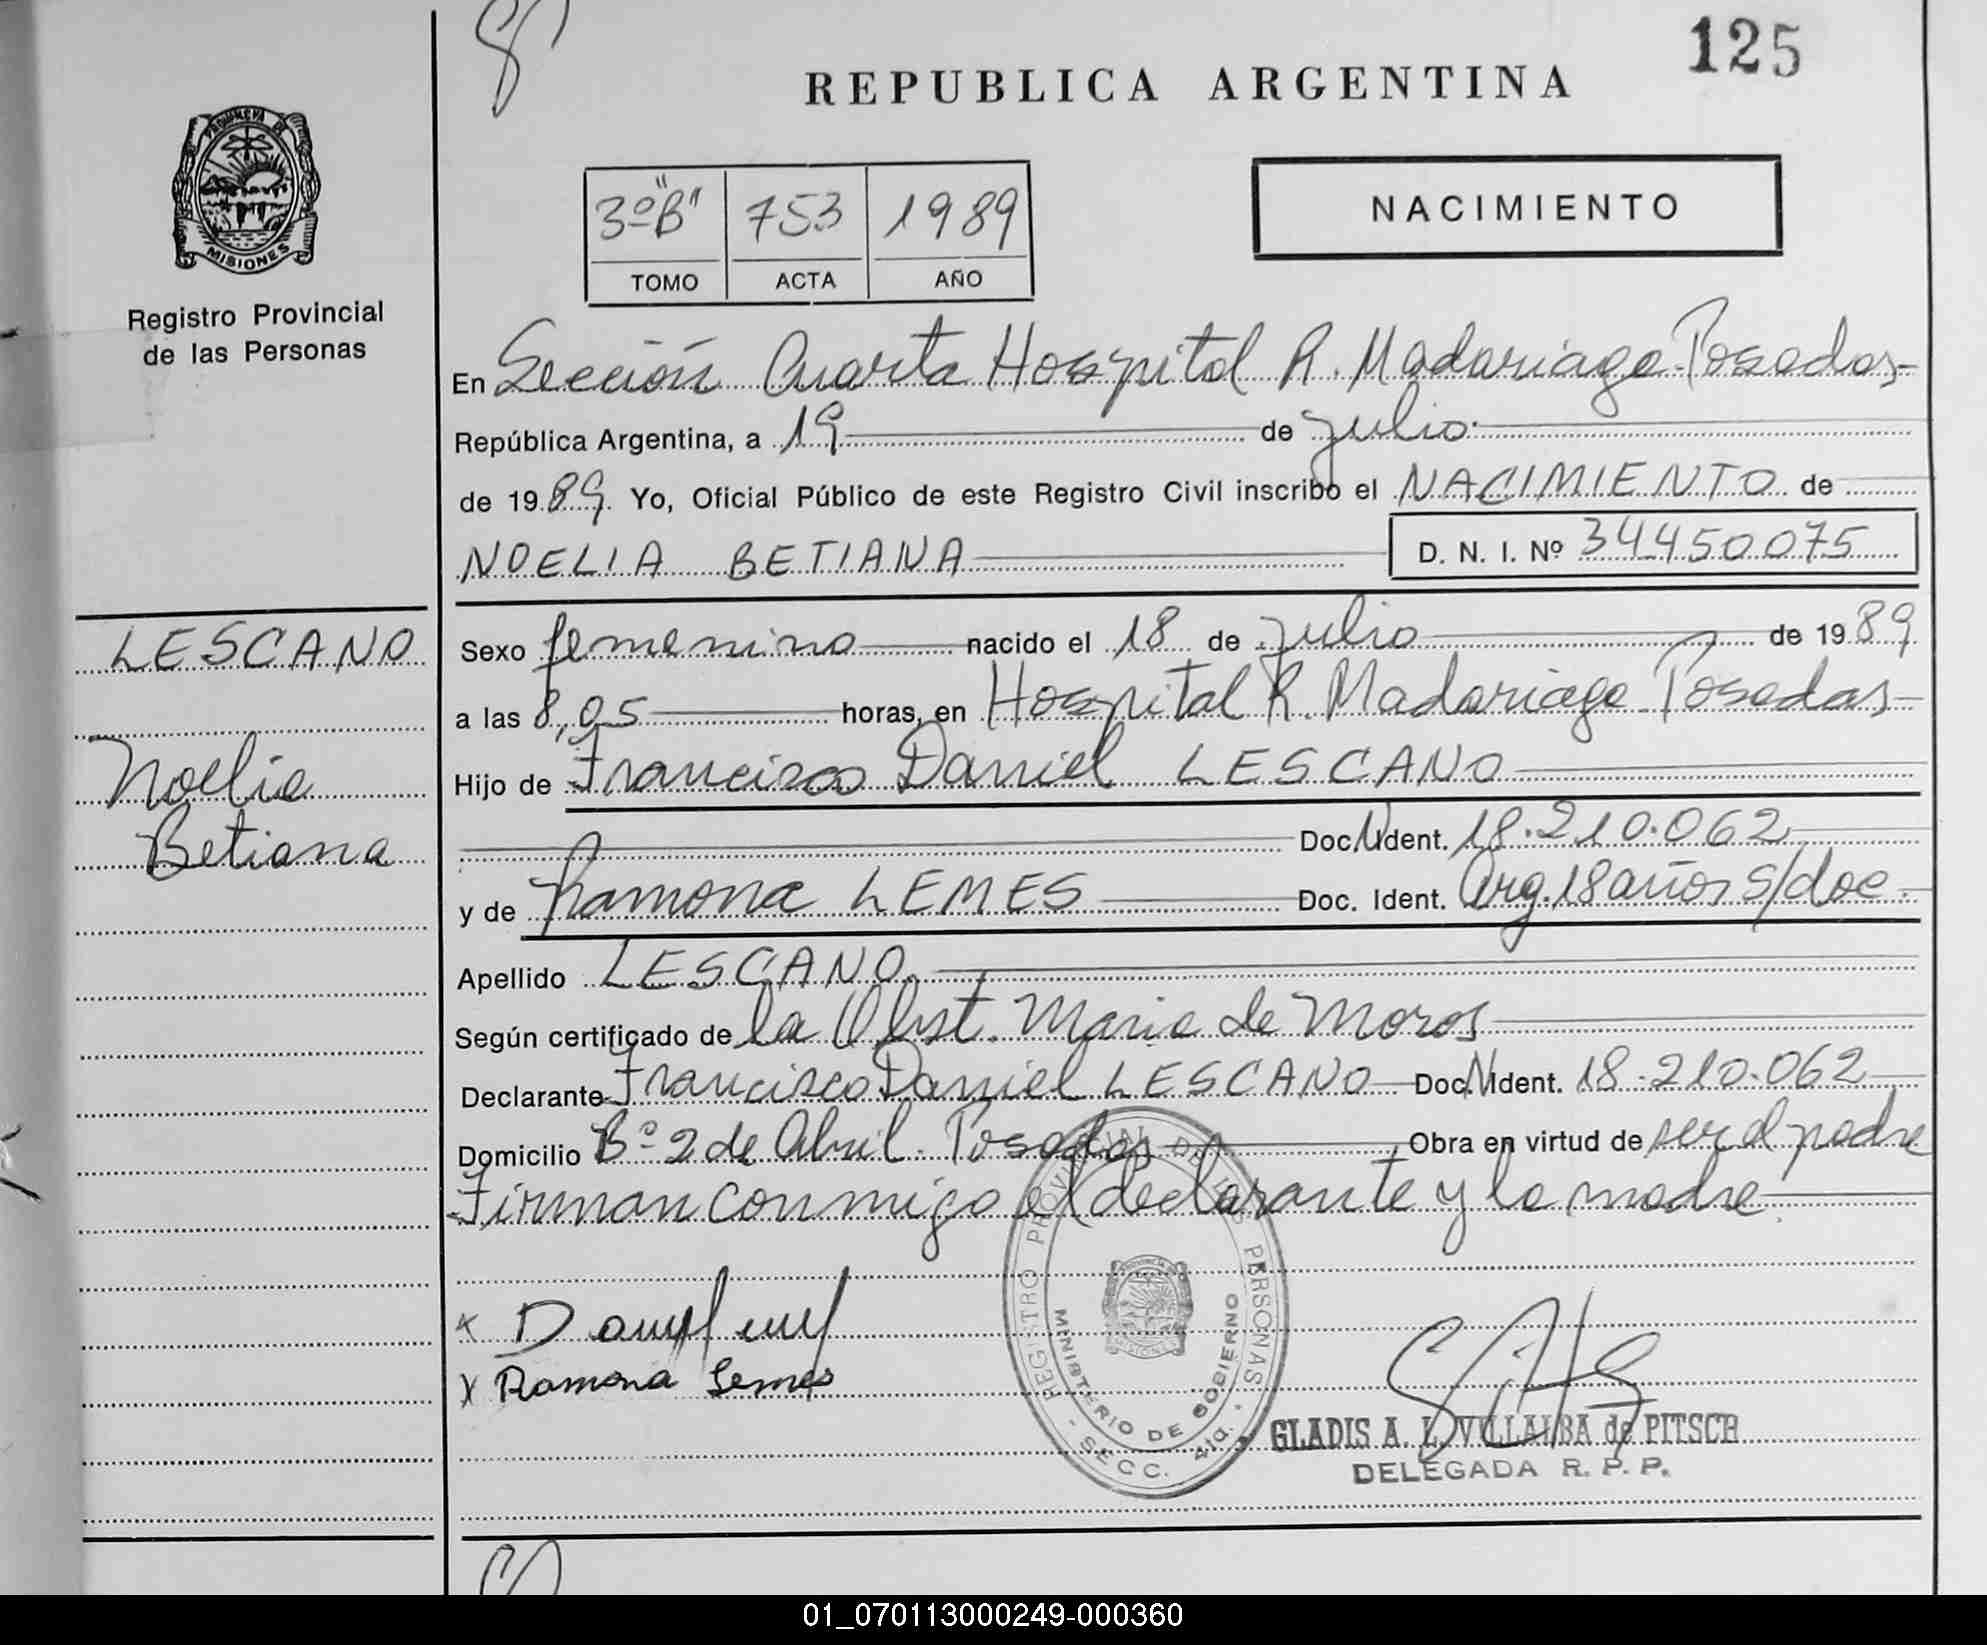 125
REPUBLICA ARGENTINA
PROVINCIA DE
MISIONES
Registro Provincial
de las Personas
3º "B" 753 1989
TOMO ACTA AÑO
NACIMIENTO
En Sección Cuarta Hospital R. Madariaga-Posadas-
República Argentina, a 19 de julio
de 1989. Yo, Oficial Público de este Registro Civil inscribo el NACIMIENTO de
NOELIA BETIANA D. N. I. Nº 34450075
LESCANO
Noelia
Betiana
Sexo femenino nacido el 18 de julio de 1989
a las 8,05 horas, en Hospital R. Madariaga Posadas-
Hijo de Francisco Daniel LESCANO
Doc. Ident. 18.210.062
y de Ramona LEMES Doc. Ident. Arg. 18 años s/doc.
Apellido LESCANO
Según certificado de la Obst. Maria de Moros
Declarante Francisco Daniel LESCANO Doc. Ident. 18.210.062
Domicilio Bº 2 de Abril. Posadas Obra en virtud de ser el padre
Firman conmigo el declarante y la madre
REGISTRO PROVINCIAL DE LAS PERSONAS
MINISTERIO DE GOBIERNO
MISIONES
- SECC. 4ta. -
x
x Ramona Lemes
GLADIS A. L. VILLALBA de PITSCH
DELEGADA R. P. P.
01_070113000249-000360